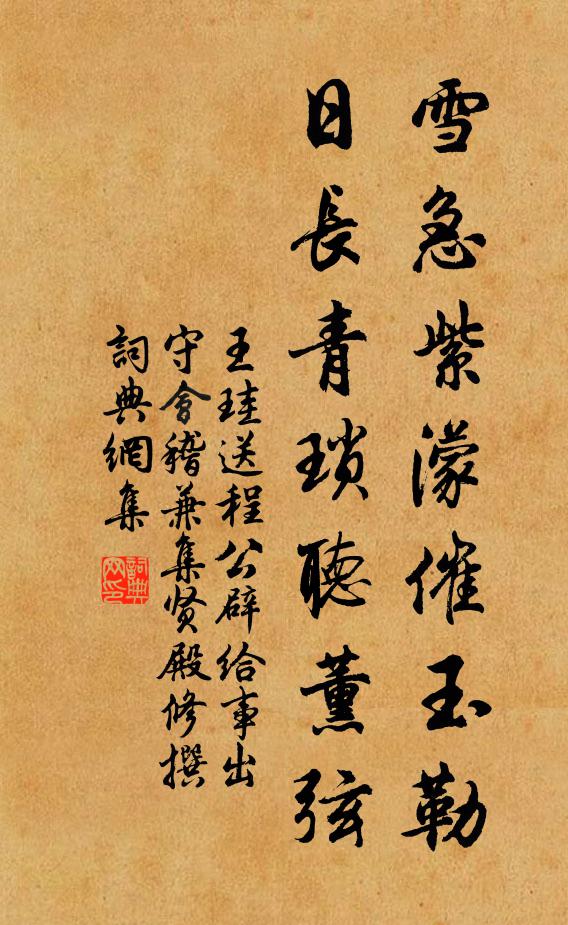 雪急紫濛催玉勒
日長青瑣聽薰弦
王珪送程公辟給事出
守會稽兼集贤殿修撰
詞典網集
詞典網印